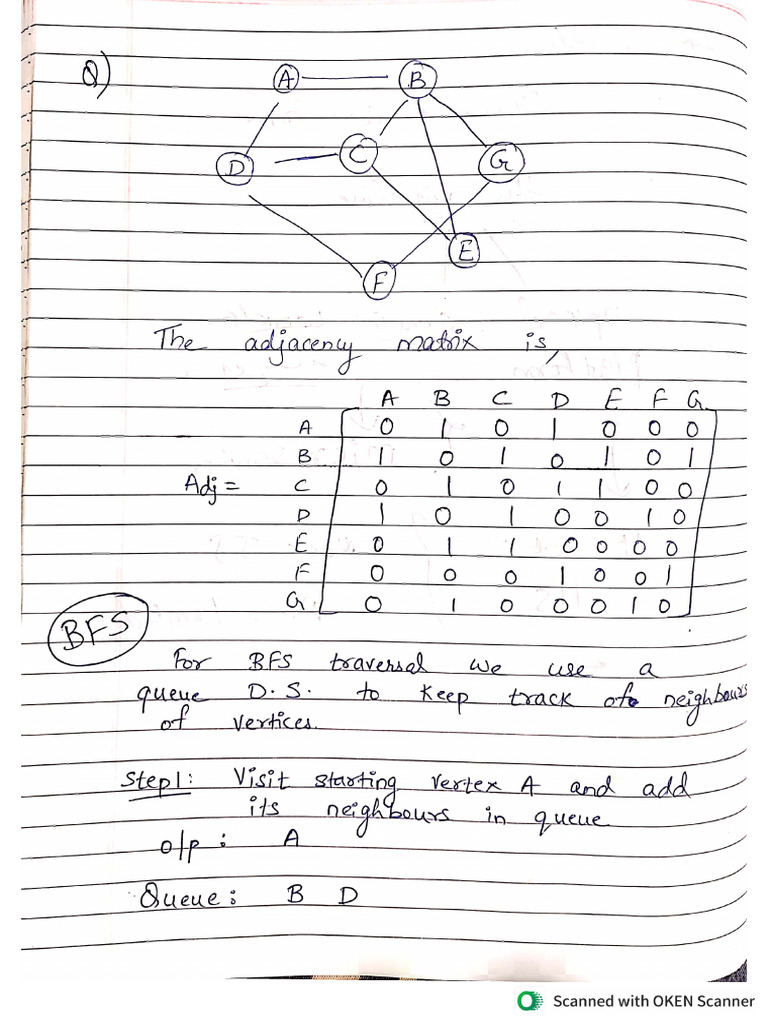 Q)
A B
D C G
E
F
The adjacency matrix is,
A B C D E F G
A 0 1 0 1 0 0 0
B 1 0 1 0 1 0 1
Adj = C 0 1 0 1 1 0 0
D 1 0 1 0 0 1 0
E 0 1 1 0 0 0 0
F 0 0 0 1 0 0 1
G 0 1 0 0 0 1 0
BFS
For BFS traversal we use a
queue D.S. to keep track of neighbours
of vertices.
Step1: Visit starting vertex A and add
its neighbours in queue
o/p : A
Queue : B D
Scanned with OKEN Scanner